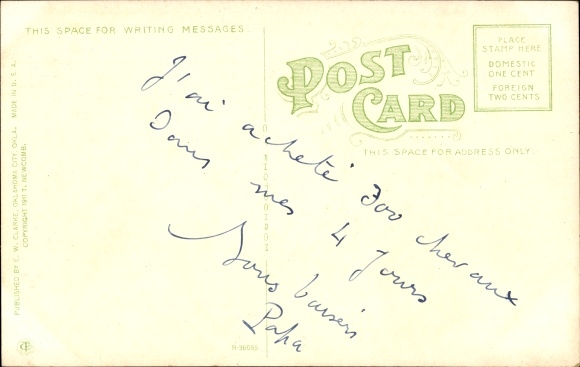 THIS SPACE FOR WRITING MESSAGES.
POST CARD
PLACE
STAMP HERE
DOMESTIC
ONE CENT
FOREIGN
TWO CENTS
THIS SPACE FOR ADDRESS ONLY
PUBLISHED BY E. W. CLARKE, OKLAHOMA CITY, OKLA. MADE IN U. S. A.
COPYRIGHT 1911 T. NEWCOMB.
J'ai acheté 300 chevaux
Dans mes 4 jours
baisers
Papa